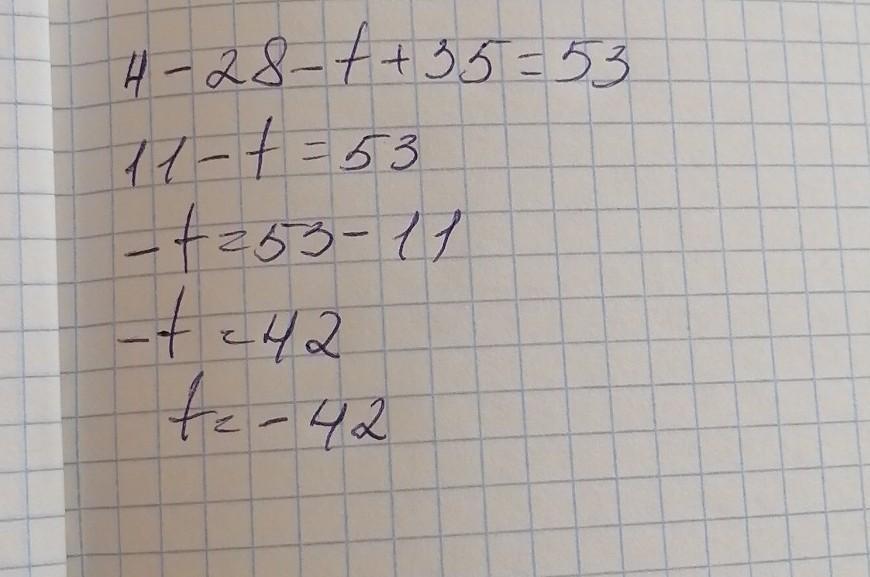 4-28-t+35=53
11-t=53
-t=53-11
-t=42
t=-42